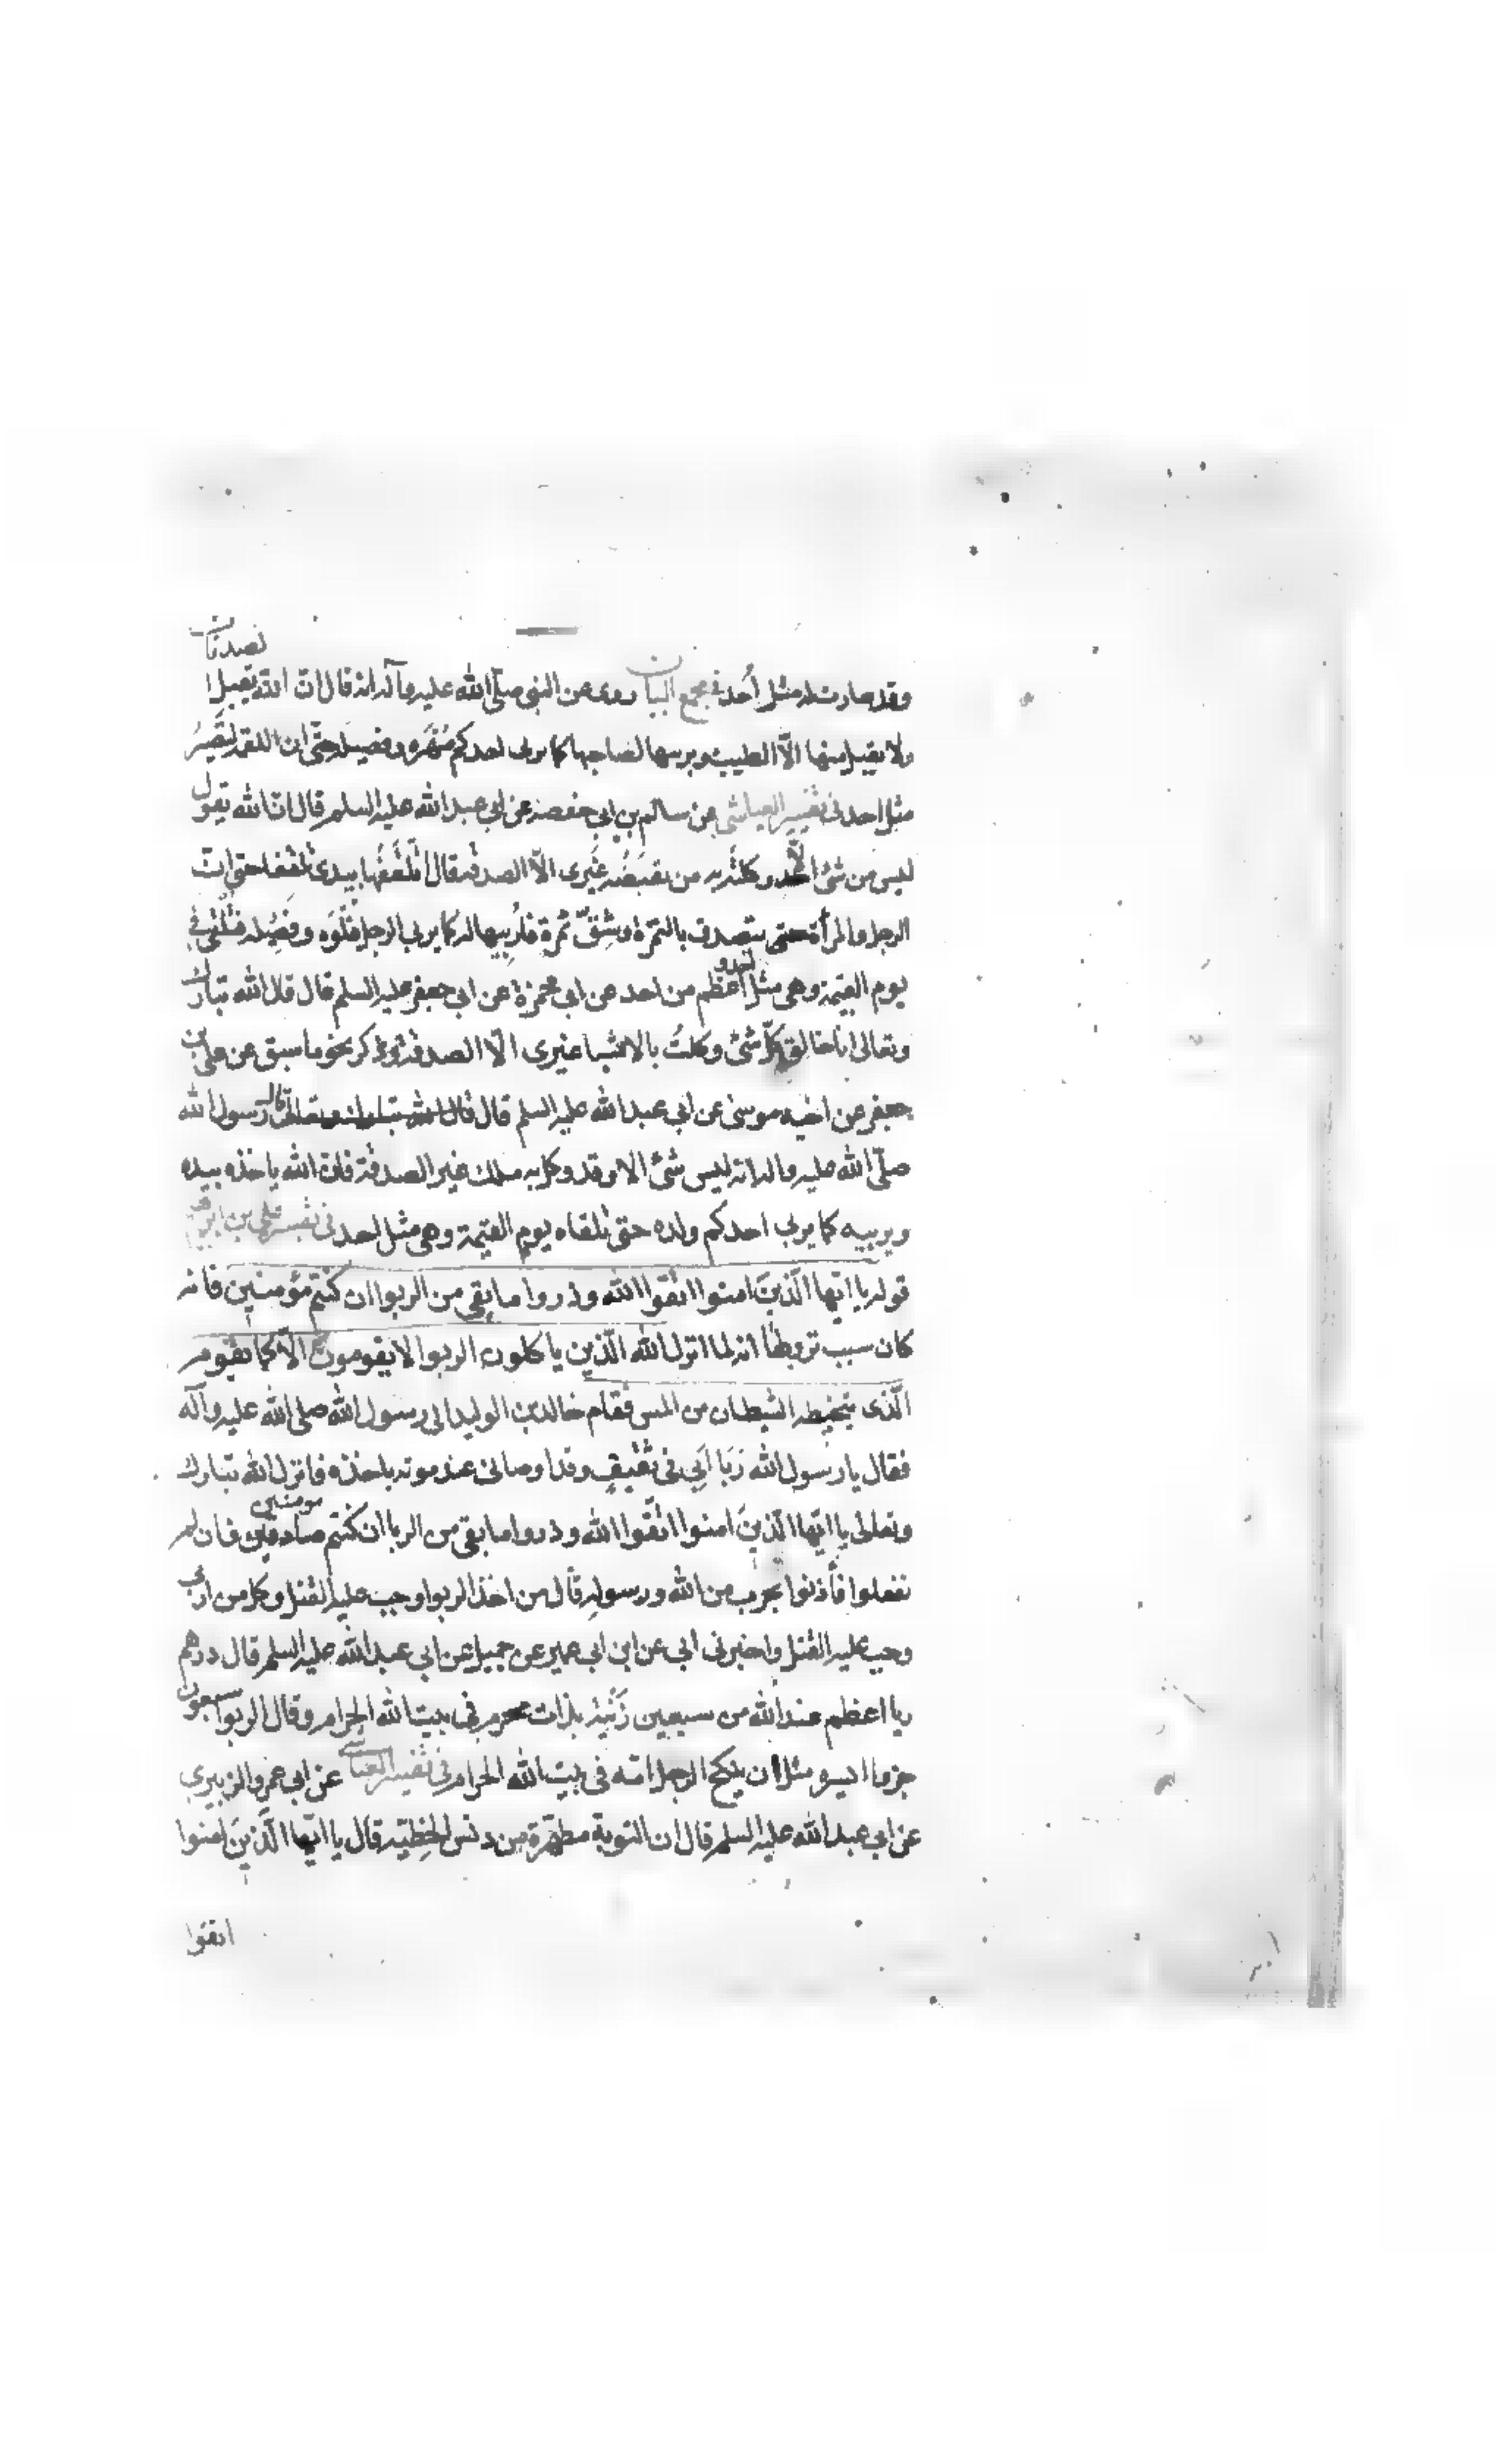 وقد صارت له مثل أُحد في مجمع البيان روى عن النبي صلّى الله عليه وآله انه قال ان الله يقبل الصدقات
ولا يقبل منها الّا الطيب ويربيها لصاحبها كما يربى احدكم مُهْرَه وفصيله حتّى ان اللقمة لتَصِيرُ
مثل احد في تفسير العياشي عن سالم بن ابي حفصه عن ابي عبد الله عليه السلم قال ان الله يقول
ليس من شئ الّا وكلت به من يقبَضُه غَيرى الّا الصدقة قال اتلَقَّفُها بيدى تلقفا حتى ان
الرجل والمرأة حتى يتصدق بالتمرة وشِقّ تمرة فاُربيها له كما يربى الرجل فَلُوَه وفَصِيله فتلقى في
يوم القيمة وهى مثل احد و اعظم من احد عن ابي حمزة عن ابي جعفر عليه السلم قال قال الله تبارك
وتعالى انا خالق كلّ شئ وكلتُ بالاشيا غيرى الّا الصدقة وذكر نحو ما سبق عن على بن
جعفر عن اخيه موسى عن ابي عبد الله عليه السلم قال قال الله تبارك وتعالى قال رسول الله
صلّى الله عليه واله انه ليس شئ الا وقد وكل به ملك غير الصدقة فان الله ياخذه بيده
ويربيه كما يربى احدكم ولده حتى تلقاه يوم القيمة وهى مثل احد في تفسير علي بن ابراهيم
قوله يا ايّها الّذينَ امنوا اتقوا الله وذروا ما بقي من الربوا ان كنتم مؤمنين فانه
كان سبب نزولها انه لما انزل الله الّذين ياكلون الربوا لا يقومون الّا كما يقوم
الّذى يتخبطه الشيطان من المس فقام خالد بن الوليد الى رسول الله صلى الله عليه وآله
فقال يا رسول الله رَبَا اَبِي في ثقيفٍ وقد اوصانى عند موته باخذه فانزل الله تبارك
وتعالى يا ايّها الّذينَ امنوا اتّقوا الله وذروا ما بقى من الربا ان كنتم صادقين مومنين فان لم
تفعلوا فأذنوا بحرب من الله ورسولِهِ قال من اخذ الربوا وجب عليه القتل وكل من اربى
وجب عليه القتل واخبرنى ابي عن ابن ابي عمير عن جميل عن ابي عبد الله عليه السلم قال درهم
ربا اعظم عند الله من سبعين زَنْيَة بذات محرم في بيت الله الحرام وقال الربوا سبعون
جزءا ايسره مثل ان ينكح الرجل امّه في بيت الله الحرام في تفسير العياشي عن ابي عمرو الزبيري
عن ابي عبد الله عليه السلم قال ان التوبة مطهّرة من دنس الخطيّة قال يا ايّها الّذينَ امنوا
اتقوا